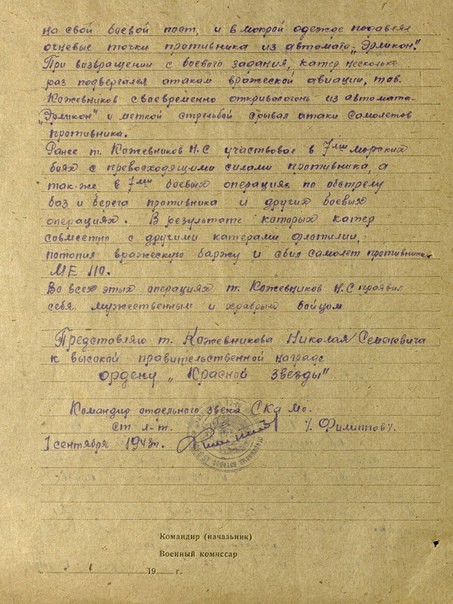 на свой боевой пост, и в мокрой одежде подавлял
огневые точки противника из автомата „Эрликон".
При возвращении с боевого задания, катер несколько
раз подвергался атакам вражеской авиации, тов.
Кожевников своевременно открывал огонь из автомата
„Эрликон" и меткой стрельбой срывал атаки самолетов
противника.
Ранее т. Кожевников Н.С участвовал в 7ми морских
боях с превосходящими силами противника, а
так-же в 7ми боевых операциях по обстрелу
баз и берега противника и других боевых
операциях. В результате которых катер
совместно с другими катерами флотилии,
потопил вражескую баржу и сбил самолет противника
МЕ 110.
Во всех этих операциях т. Кожевников Н.С проявил
себя мужественным и храбрым бойцом.
Представляю т. Кожевникова Николая Семеновича
к высокой правительственной награде
ордену „Красной Звезды"
Командир отдельного звена СКа МО.
Ст. л-т. /. Филиппов/.
1 сентября 194 г.
Командир (начальник)
Военный комиссар
19 г.